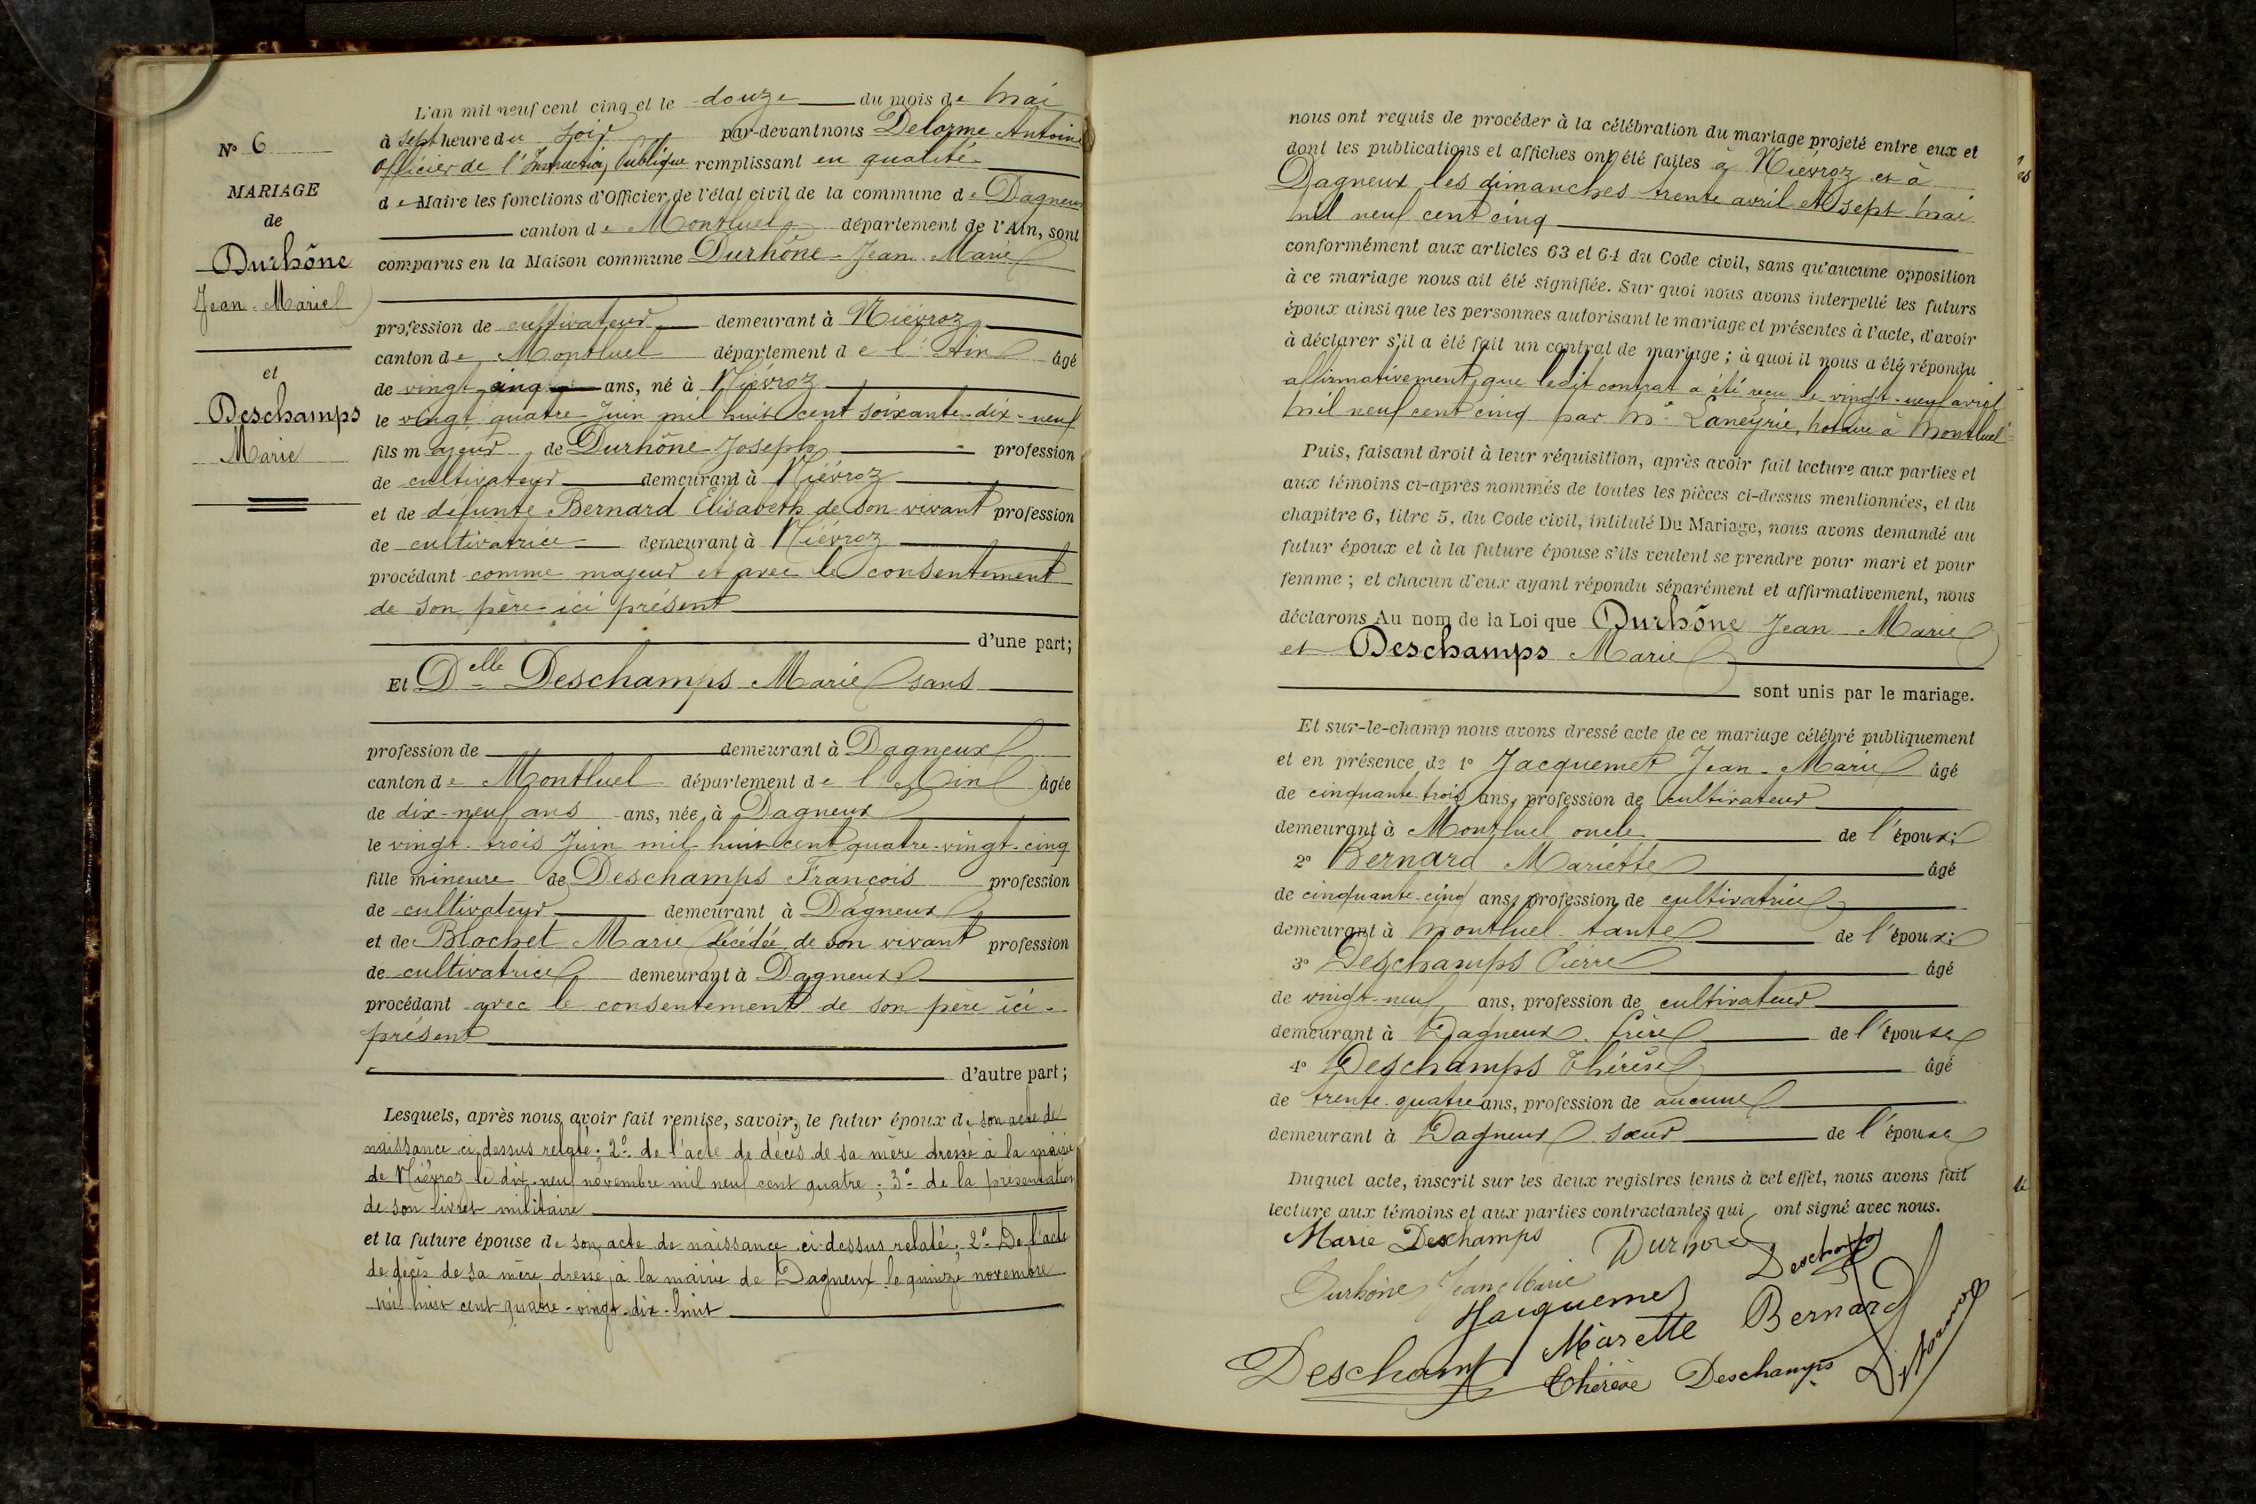 N° 6
MARIAGE
de
Durhône
Jean-Marie
et
Deschamps
Marie
L'an mil neuf cent cinq et le douze du mois de Mai
à sept heure du soir par-devant nous Delorme Antoine
Officier de l'Instruction Publique remplissant en qualité
de Maire les fonctions d'Officier de l'état civil de la commune de Dagneux
canton de Montluel département de l'Ain, sont
comparus en la Maison commune Durhône Jean Marie
profession de cultivateur demeurant à Niévroz
canton de Montluel département de l'Ain âgé
de vingt-cinq ans, né à Niévroz
le vingt quatre Juin mil huit cent soixante-dix-neuf
fils majeur de Durhône Joseph profession
de cultivateur demeurant à Niévroz
et de défunte Bernard Elisabeth de son vivant profession
de cultivatrice demeurant à Niévroz
procédant comme majeur et avec le consentement
de son père ici présent
d'une part;
Et Delle Deschamps Marie sans
profession de demeurant à Dagneux
canton de Montluel département de l'Ain âgée
de dix-neuf ans ans, née à Dagneux
le vingt-trois Juin mil huit cent quatre-vingt-cinq
fille mineure de Deschamps François profession
de cultivateur demeurant à Dagneux
et de Blochet Marie décédée de son vivant profession
de cultivatrice demeurant à Dagneux
procédant avec le consentement de son père ici-
présent
d'autre part;
Lesquels, après nous avoir fait remise, savoir, le futur époux de son acte de
naissance ci-dessus relaté; 2° de l'acte de décès de sa mère dressé à la mairie
de Niévroz le dix-neuf novembre mil neuf cent quatre; 3° de la présentation
de son livret militaire
et la future épouse de son acte de naissance ci-dessus relaté; 2° De l'acte
de décès de sa mère dressé à la mairie de Dagneux le quinze novembre
mil huit cent quatre-vingt-dix-huit
nous ont requis de procéder à la célébration du mariage projeté entre eux et
dont les publications et affiches ont été faites à Niévroz et à
Dagneux les dimanches trente avril et sept Mai
mil neuf cent cinq
conformément aux articles 63 et 64 du Code civil, sans qu'aucune opposition
à ce mariage nous ait été signifiée. Sur quoi nous avons interpellé les futurs
époux ainsi que les personnes autorisant le mariage et présentes à l'acte, d'avoir
à déclarer s'il a été fait un contrat de mariage; à quoi il nous a été répondu
affirmativement, que ledit contrat a été reçu le vingt-neuf avril
mil neuf cent cinq par Me Laneyrie, notaire à Montluel
Puis, faisant droit à leur réquisition, après avoir fait lecture aux parties et
aux témoins ci-après nommés de toutes les pièces ci-dessus mentionnées, et du
chapitre 6, titre 5, du Code civil, intitulé Du Mariage, nous avons demandé au
futur époux et à la future épouse s'ils veulent se prendre pour mari et pour
femme; et chacun d'eux ayant répondu séparément et affirmativement, nous
déclarons Au nom de la Loi que Durhône Jean Marie
et Deschamps Marie
sont unis par le mariage.
Et sur-le-champ nous avons dressé acte de ce mariage célébré publiquement
et en présence de 1° Jacquemet Jean-Marie âgé
de cinquante trois ans, profession de cultivateur
demeurant à Montluel oncle de l'époux;
2° Bernard Mariette âgé
de cinquante-cinq ans, profession de cultivatrice
demeurant à Montluel tante de l'époux;
3° Deschamps Pierre âgé
de vingt-neuf ans, profession de cultivateur
demeurant à Dagneux frère de l'épouse
4° Deschamps Thérèse âgé
de trente-quatre ans, profession de aucune
demeurant à Dagneux sœur de l'épouse
Duquel acte, inscrit sur les deux registres tenus à cet effet, nous avons fait
lecture aux témoins et aux parties contractantes qui ont signé avec nous.
Marie Deschamps Durhone Deschamps
Durhône Jean Marie
Jacquemet
Mariette Bernard
Deschamps Thérèse Deschamps Delorme